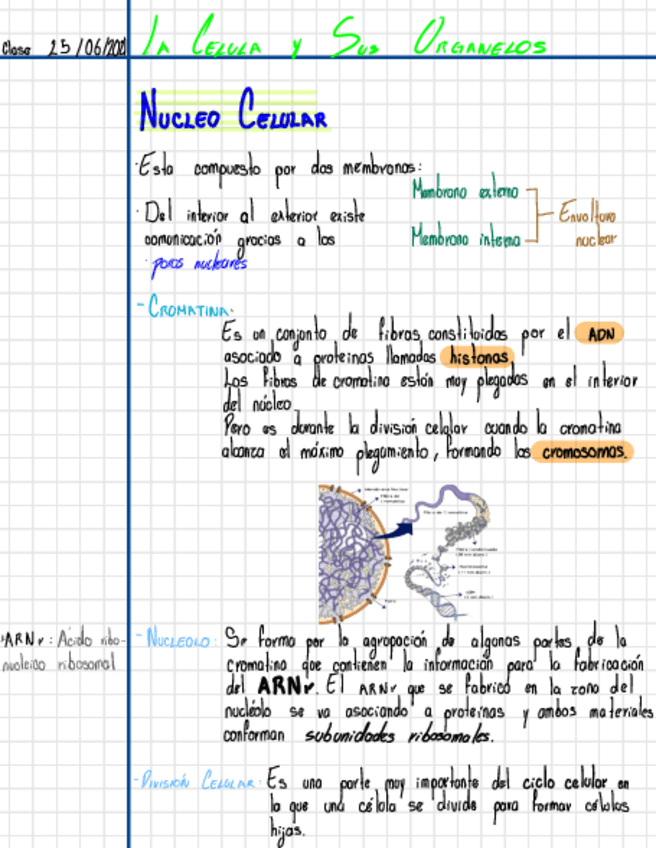 Clase 25/06/202
LA CELULA y SUS ORGANELOS
NUCLEO CELULAR
· Esta compuesto por dos membranas:
Membrana externa
Membrana interna
Envoltura
nuclear
· Del interior al exterior existe
comunicación gracias a los
· poros nucleares
- CROMATINA:
Es un conjunto de fibras constituidas por el ADN
asociado a proteinas llamadas histonas
Las fibras de cromatina están muy plegadas en el interior
del núcleo
Pero es durante la división celular cuando la cromatina
alcanza el máximo plegamiento, formando los cromosomas.
Fibra de cromatina
Poro
· ARNr: Acido ribo-
nucleico ribosomal
- NUCLEOLO: Se forma por la agrupación de algunas partes de la
cromatina que contienen la información para la fabricación
del ARNr. El ARNr que se fabrica en la zona del
nucléolo se va asociando a proteinas y ambos materiales
conforman subunidades ribosomales.
- DIVISIÓN CELULAR: Es una parte muy importante del ciclo celular en
la que una célula se divide para formar células
hijas.